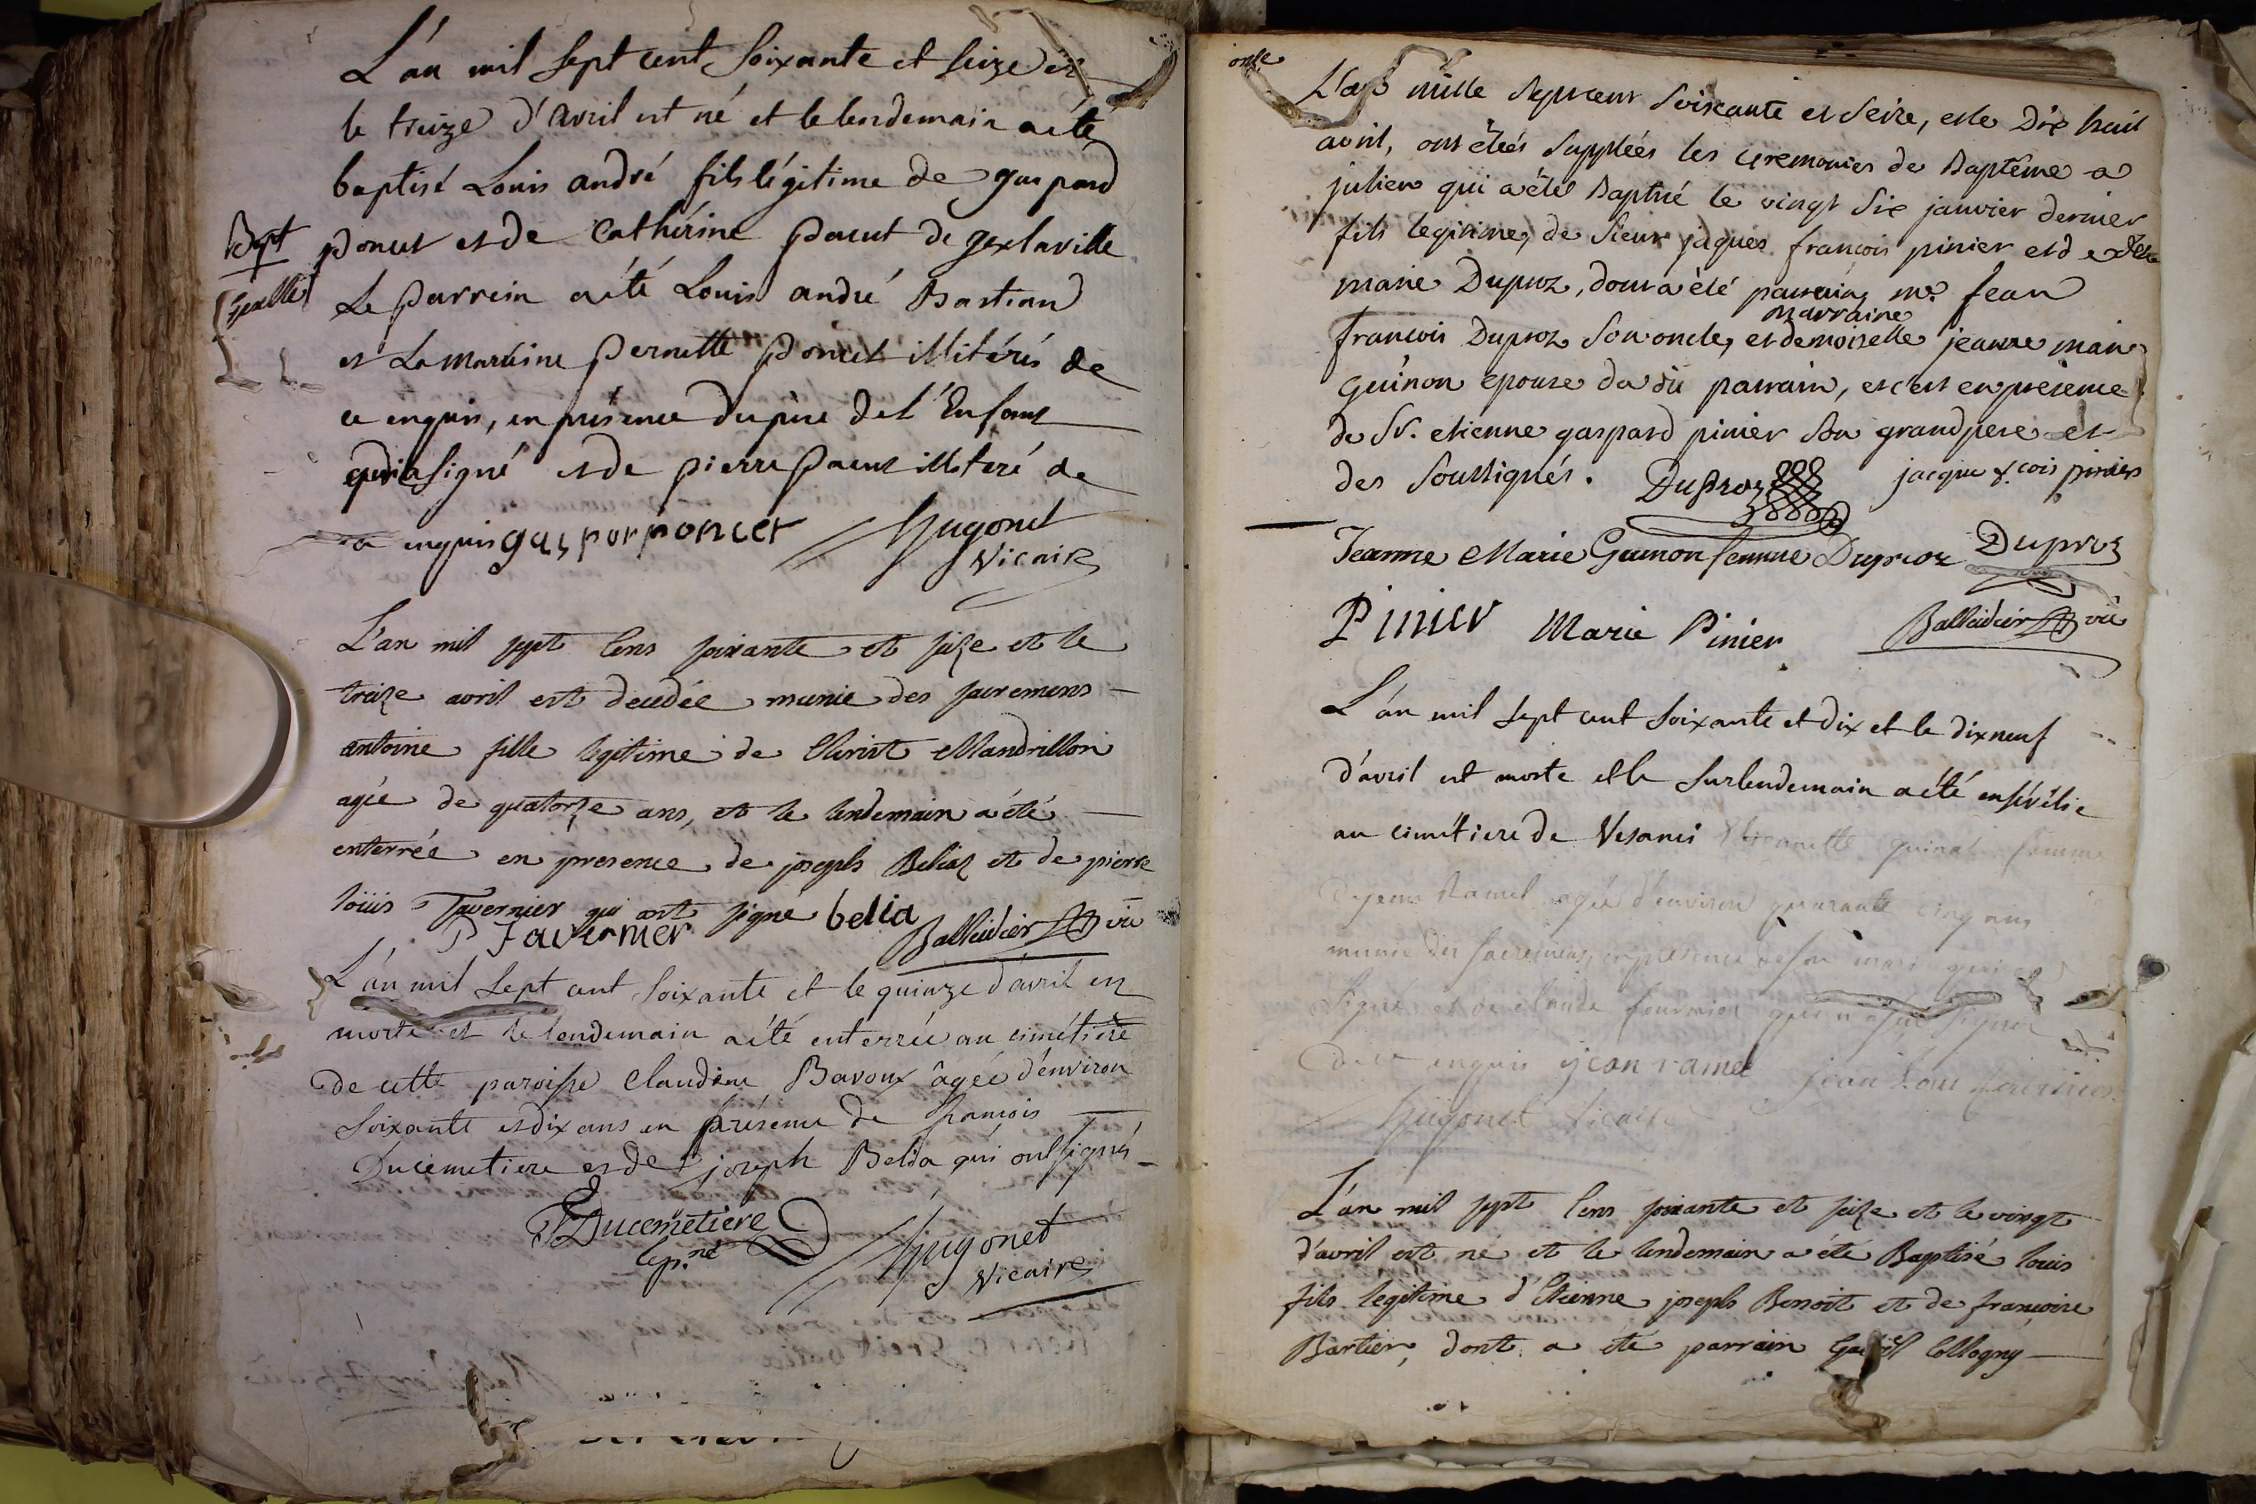 L'an mil sept cent soixante et seize et
le treize d'avril est né et le lendemain a été
baptisé Louis andré fils légitime de gaspard
Bapt
poncet et de Cathérine pacut de gex la ville
Le parrein a été Louis andré Bastian
et La maréine pernette poncet illitérés de
ce enquis, en présence du père de l'Enfant
qui a signé et de pierre pacut illiteré de
ce enquis gaspor poncet Hugonet
Vicaire
L'an mil sept cens soixante et seize et le
treize avril est decedée munie des sacremens
antoine fille legitime de Mandrillon
agée de quatorze ans, et le lendemain a été
enterrée en presence de joseph Beliaz et de pierre
loüis Tavernier qui ont signé belia
P Tavernier Balleidier vic
L'an mil sept cent soixante et le quinze d'avril est
morte et le lendemain a été enterrée au cimétière
de cette paroisse Claudine Bavoux âgée d'environ
soixante et dix ans en présence de françois
Ducemetiere et de joseph Belia qui ont signés
Ducemetiere
Hugonet
Vicaire
onze
L'an mille Sept cent Soixante et Seize, et le Dix huit
avril, ont étéés Suppléés les ceremonies de Baptême a
julien qui a été Baptisé le vingt Six janvier dernier
fils legitime, de Sieur jaques françois pinier et de
marie Duproz, dont a été parrain, mr. Jean
marraine
françois Duproz Son oncle, et demoiselle jeanne marie
Guinon epouse du dit parrain, et c'est en présence
de Sr. etienne gaspard pinier Son grand pere et
des Soussignés. Duproz jacque f.cois pinier
Jeanne Marie Guinon femme Duproz Duproz
Pinier Marie Pinier Balleidier vic
L'an mil sept cent soixante et dix et le dixneuf
d'avril est morte et le surlendemain a été ensévélie
au cimétiere de Vesanci quinat femme
de jean Ramel agée d'environ quarante cinq ans
munie des sacremens en présence de son mari qui a
signé et de claude fournier qui n'a sçu signer
de ce enquis jean ramel jean
Hugonet vicaire
L'an mil sept cens soixante et seize et le vingt
d'avril est né et le lendemain a été Baptisé louis
fils legitime d'Etienne joseph Benoit et de françoise
Bartier, dont a été parrain Collogny